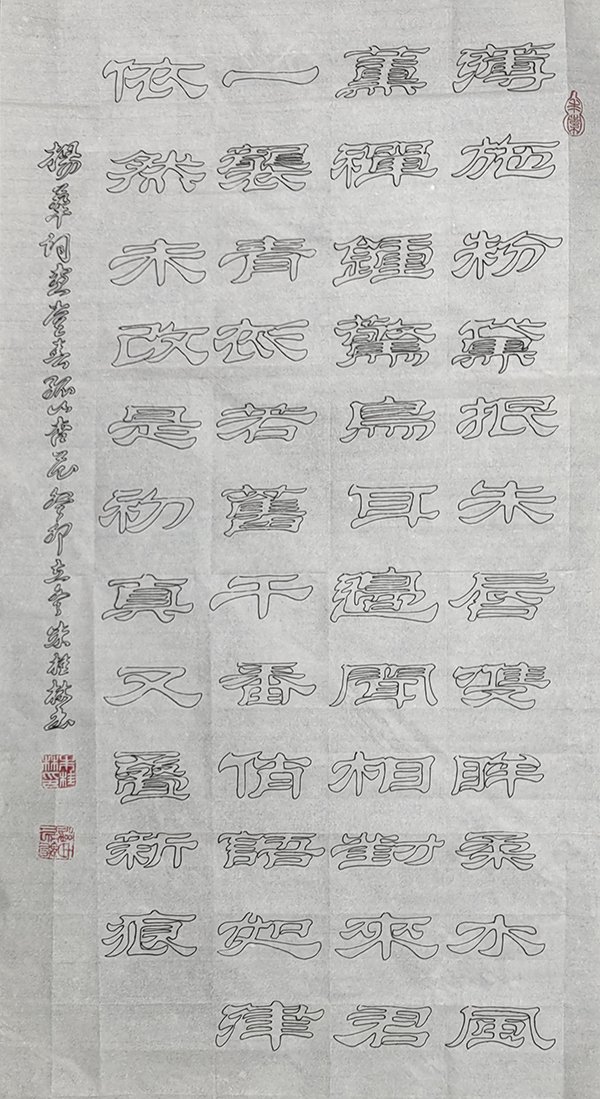 薄施粉黛抿朱唇雙眸柔水風
薰禪鍾驚鳥耳邊聞相對來君
一襲青衣若舊千番俏語如津
依然未改是初真又疊新痕
楊華詞畫堂春孤山杏花癸卯立冬朱桂林書
朱桂林印